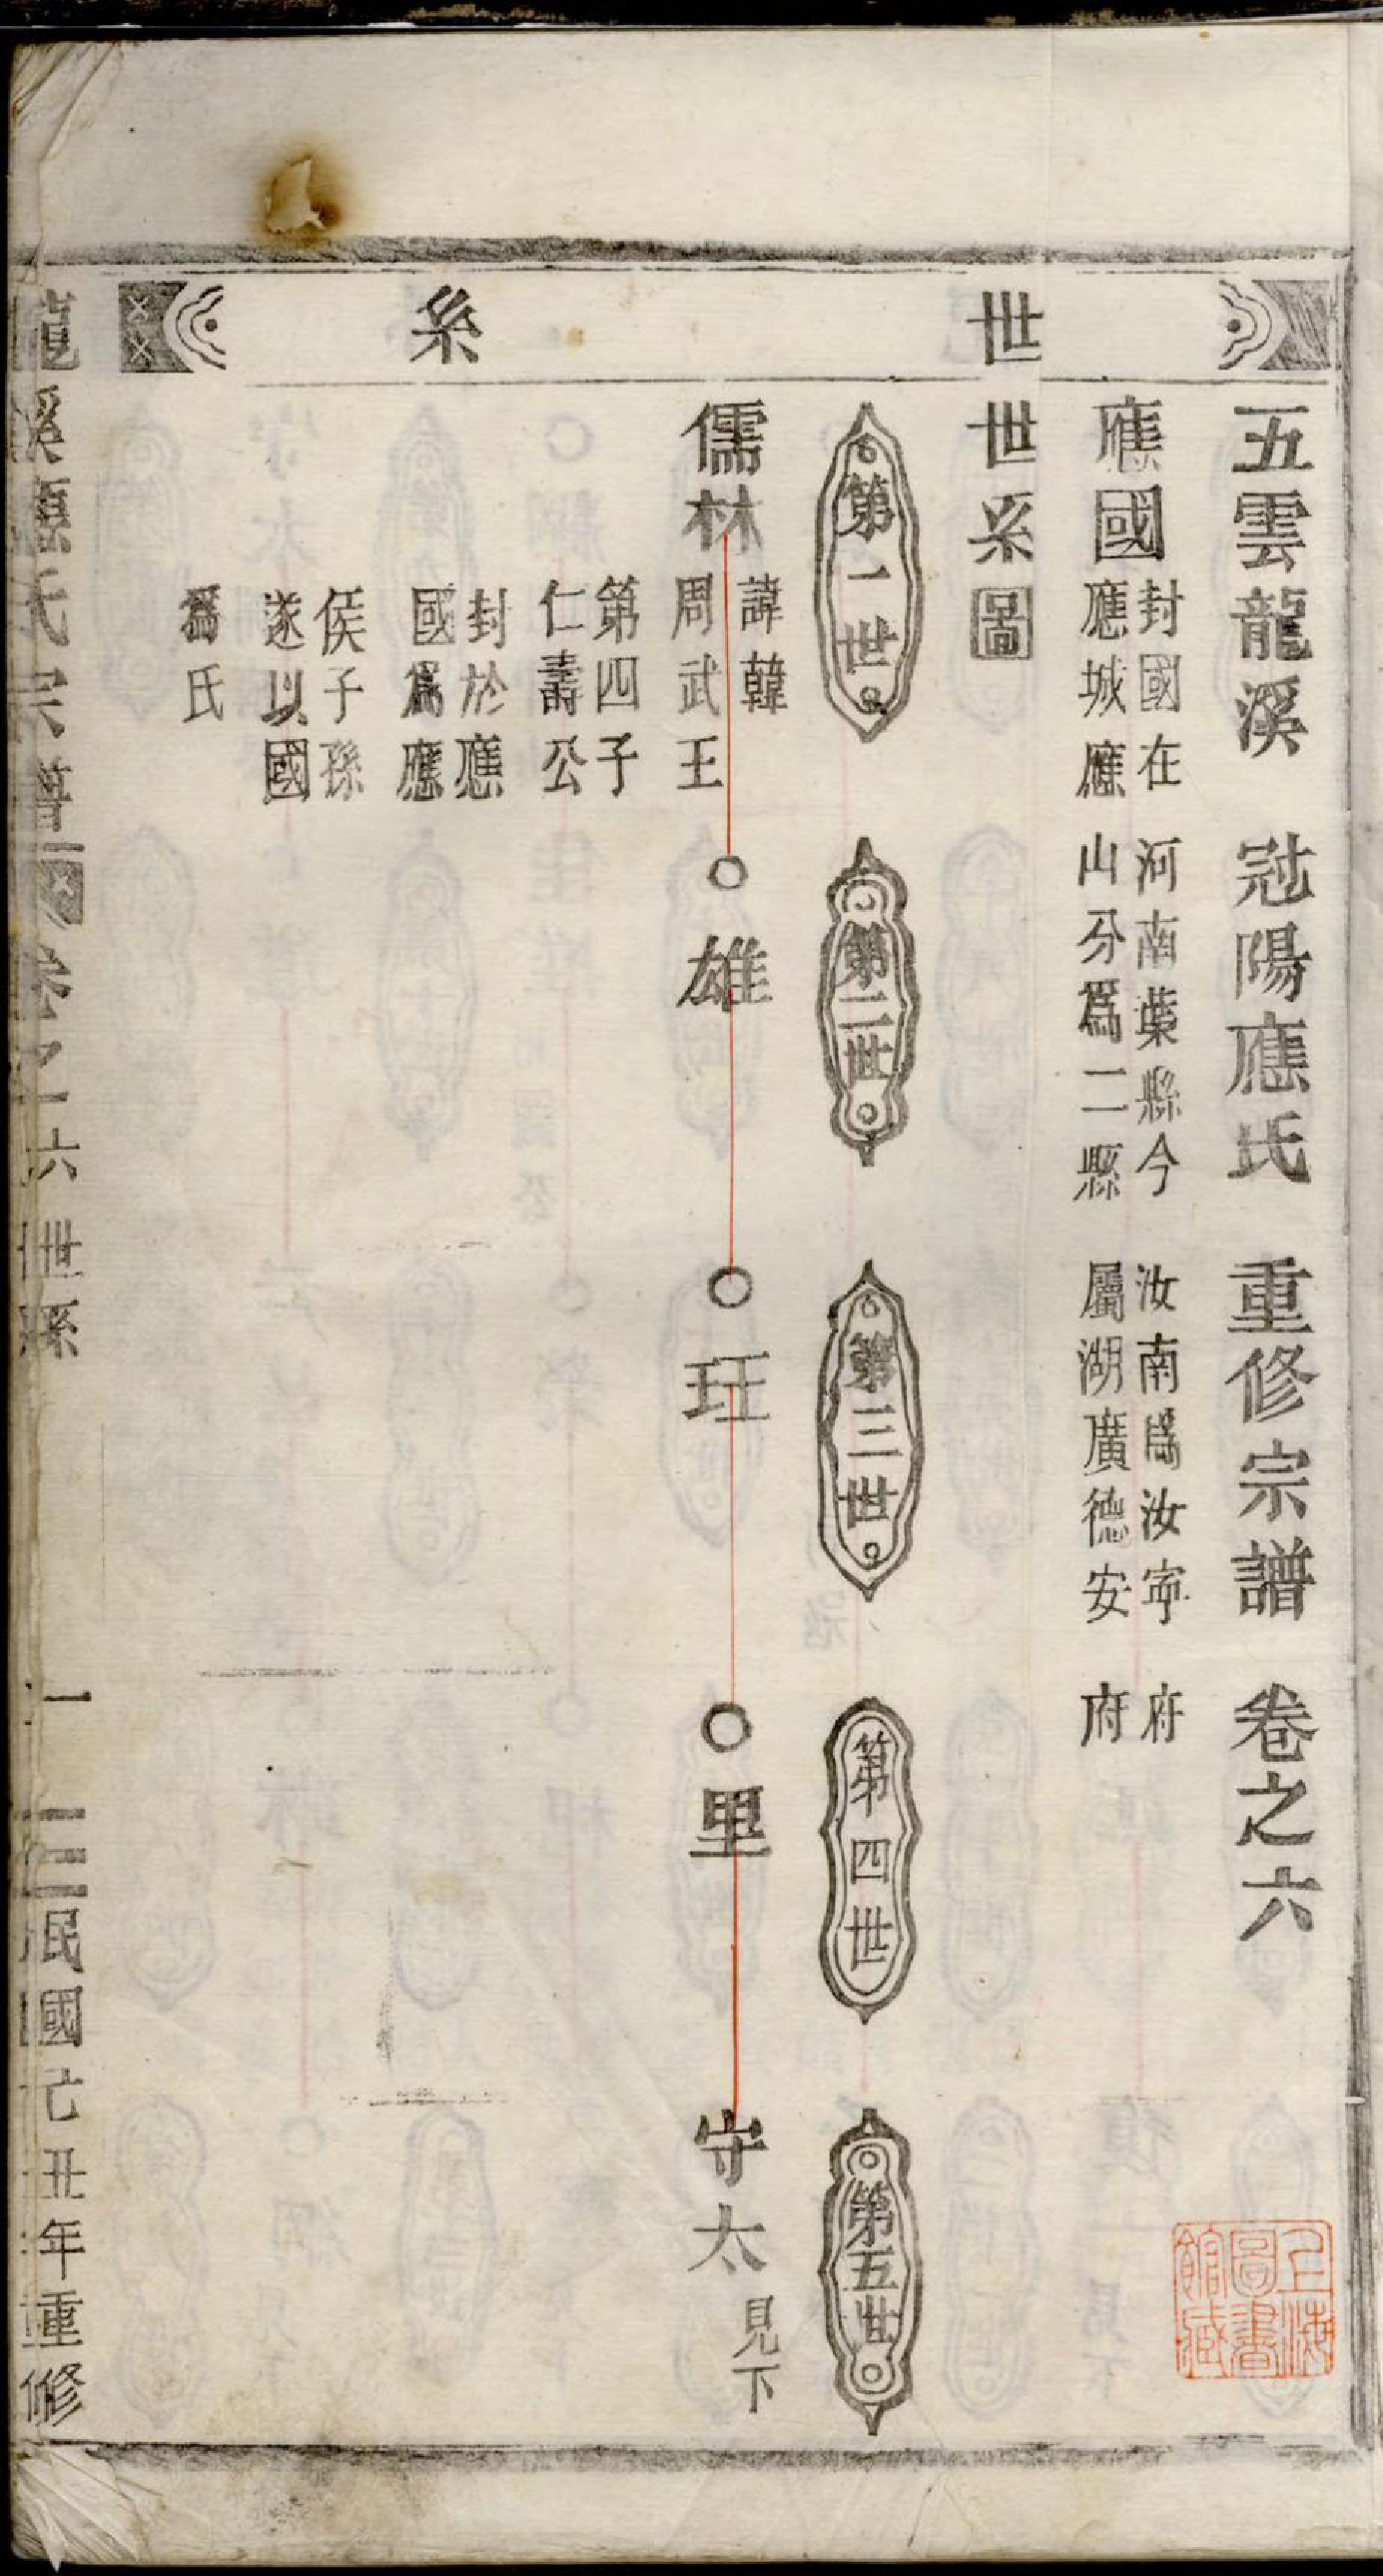 世系
五雲龍溪 冠陽應氏 重修宗譜 卷之六
應國
封國在河南葉縣今汝南爲汝寧府
應城應山分爲二縣屬湖廣德安府
世系圖
第一世
第二世
第三世
第四世
第五世
儒林
諱韓
周武王
第四子
仁壽公
封於應
國爲應
侯子孫
遂以國
爲氏
雄
玨
里
守太
見下
龍溪應氏宗譜 卷之六 世系 一 民國亡丑年重修
上海圖書館藏